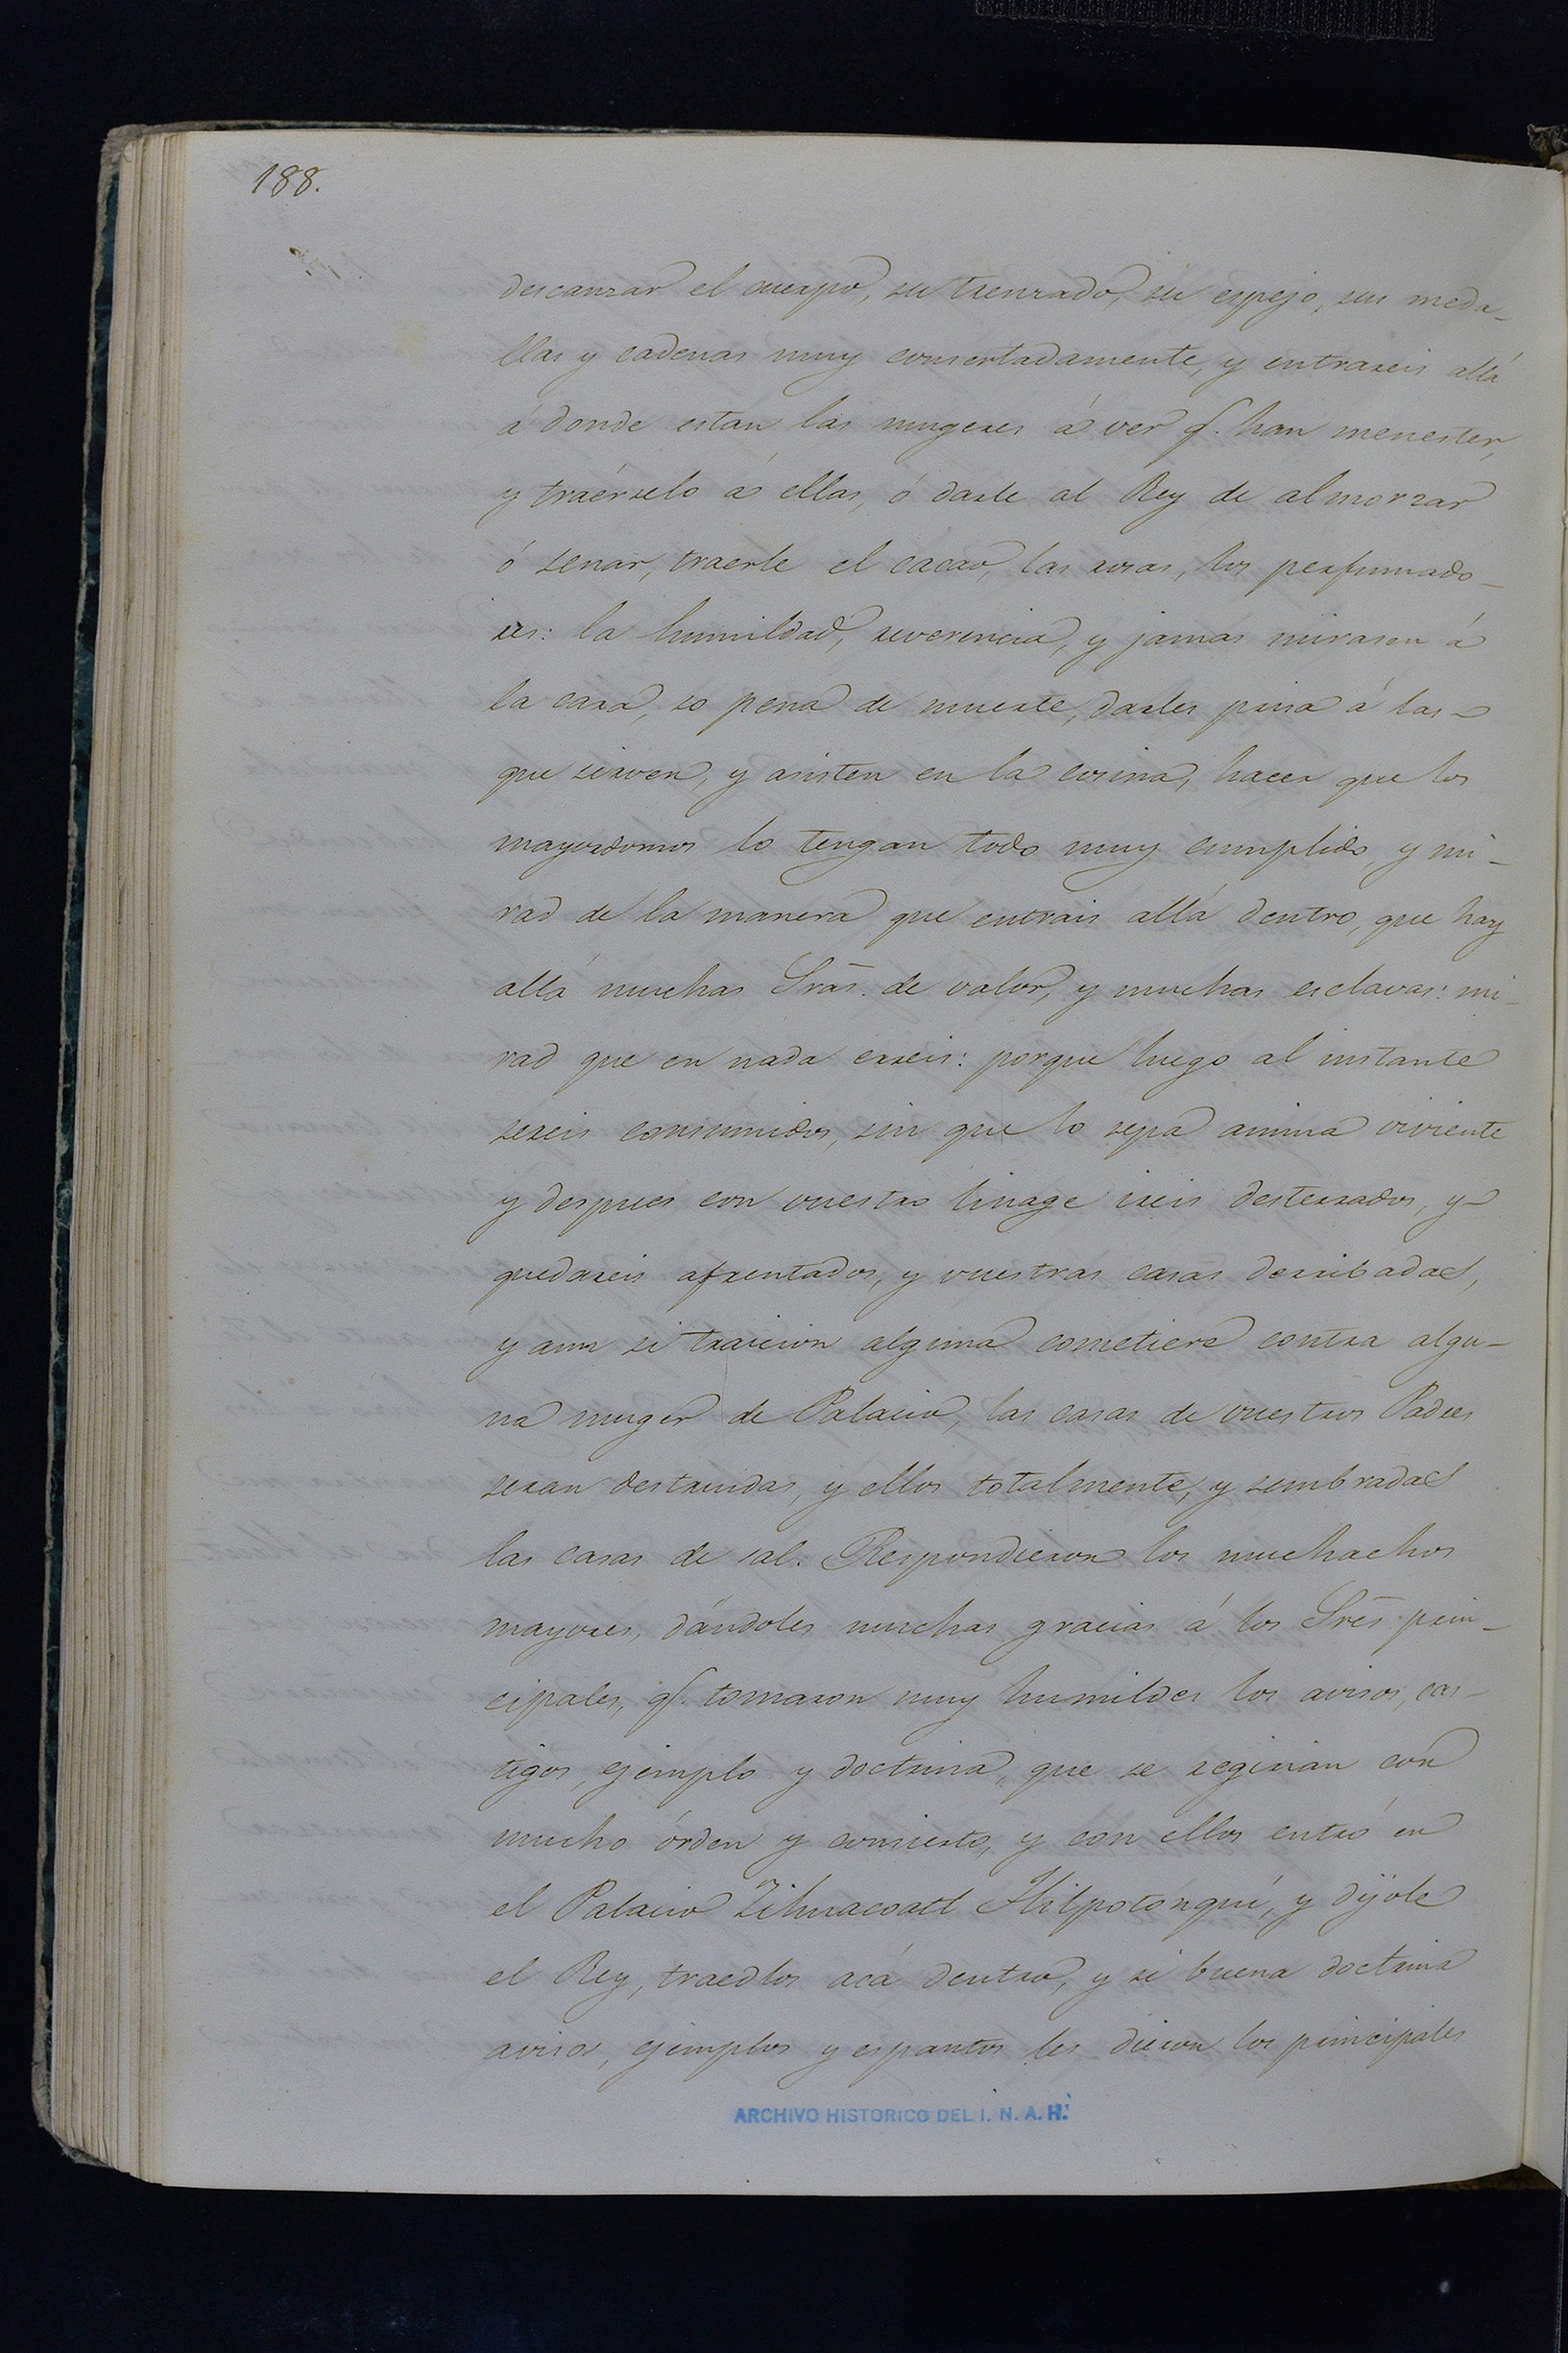 188.
descanzar el cuerpo, su trenzado, su espejo, sus meda-
llas y cadenas muy consertadamente, y entrareis allá
á donde estan las mugeres á ver q. han menester,
y traérselo á ellas, ó darle al Rey de almorzar
ó zenar, traerle el cacao, las rosas, los perfumado-
res: la humildad, reverencia, y jamas mirasen á
la cara, so pena de muerte, darles prisa á las
que sirven, y asisten en la cosina, hacer que los
mayordomos lo tengan todo muy cumplido y mi-
rad de la manera que entrais allá dentro, que hay
allá muchas Srãs. de valor, y muchas esclavas: mi-
rad que en nada erreis: porque luego al instante
sereis consumidos, sin que lo sepa anima viviente
y despues con vuestro linage ireis desterrados, y
quedareis afrentados, y vuestras casas derribadas,
y aun si traicion alguna cometiere contra algu-
na muger de Palacio, las casas de vuestros Padres
seran destruidas, y ellos totalmente, y sembradas
las casas de sal. Respondieron los muchachos
mayores, dándoles muchas gracias á los Srẽs prin-
cipales, q. tomaron muy humildes los avisos, cas-
tigos, ejemplo y doctrina, que se regirian con
mucho órden y consierto, y con ellos entró en
el Palacio Zihuacoatl Tlilpotonquí, y dijole
el Rey, traedlos acá dentro, y si buena doctrina
avisos, ejemplos y espantos les dieron los principales
ARCHIVO HISTORICO DEL I. N. A. H.